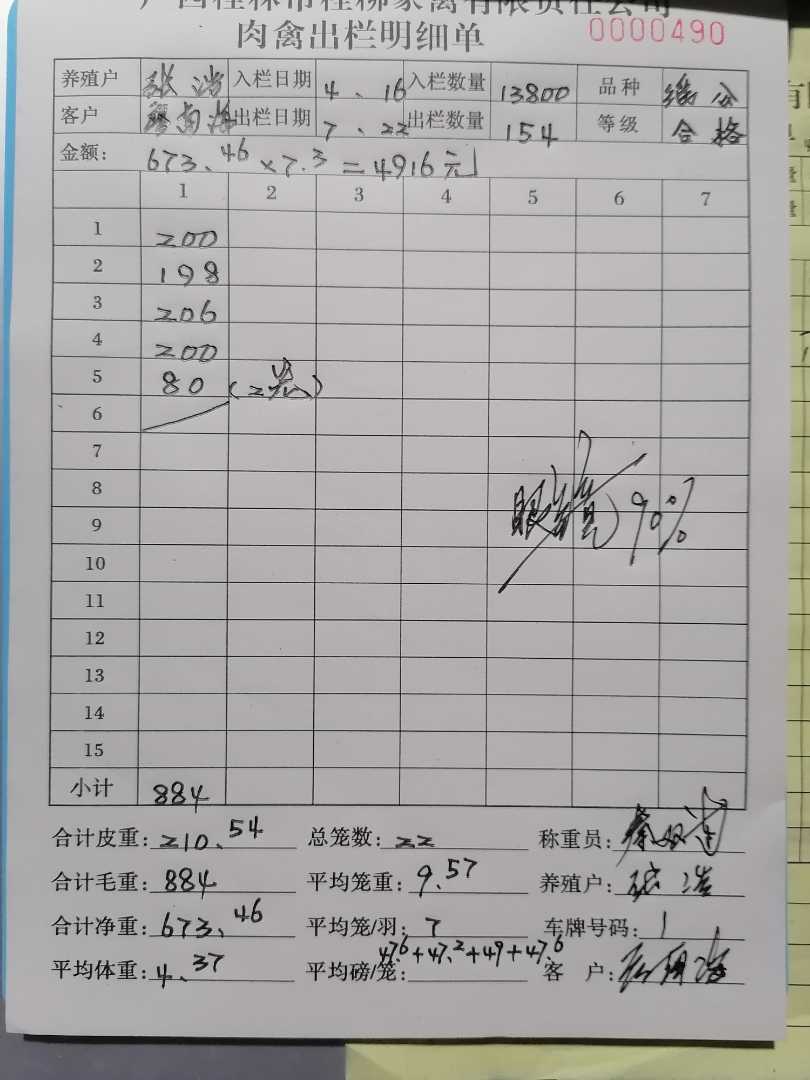 广西桂林市桂柳家禽有限责任公司
肉禽出栏明细单 0000490
养殖户 张浩 入栏日期 4、16 入栏数量 13800 品种
客户 出栏日期 7、22 出栏数量 154 等级 合格
金额: 673.46×7.3=4916元
1 2 3 4 5 6 7
1 200
2 198
3 206
4 200
5 80 (2笼)
6
7
8
9 90%
10
11
12
13
14
15
小计 884
合计皮重: 210.54 总笼数: 22 称重员:
合计毛重: 884 平均笼重: 9.57 养殖户: 张浩
合计净重: 673.46 平均笼/羽: 7 车牌号码: 1
平均体重: 4.37 平均磅/笼: 47.6+47.2+49+47.6 客户: